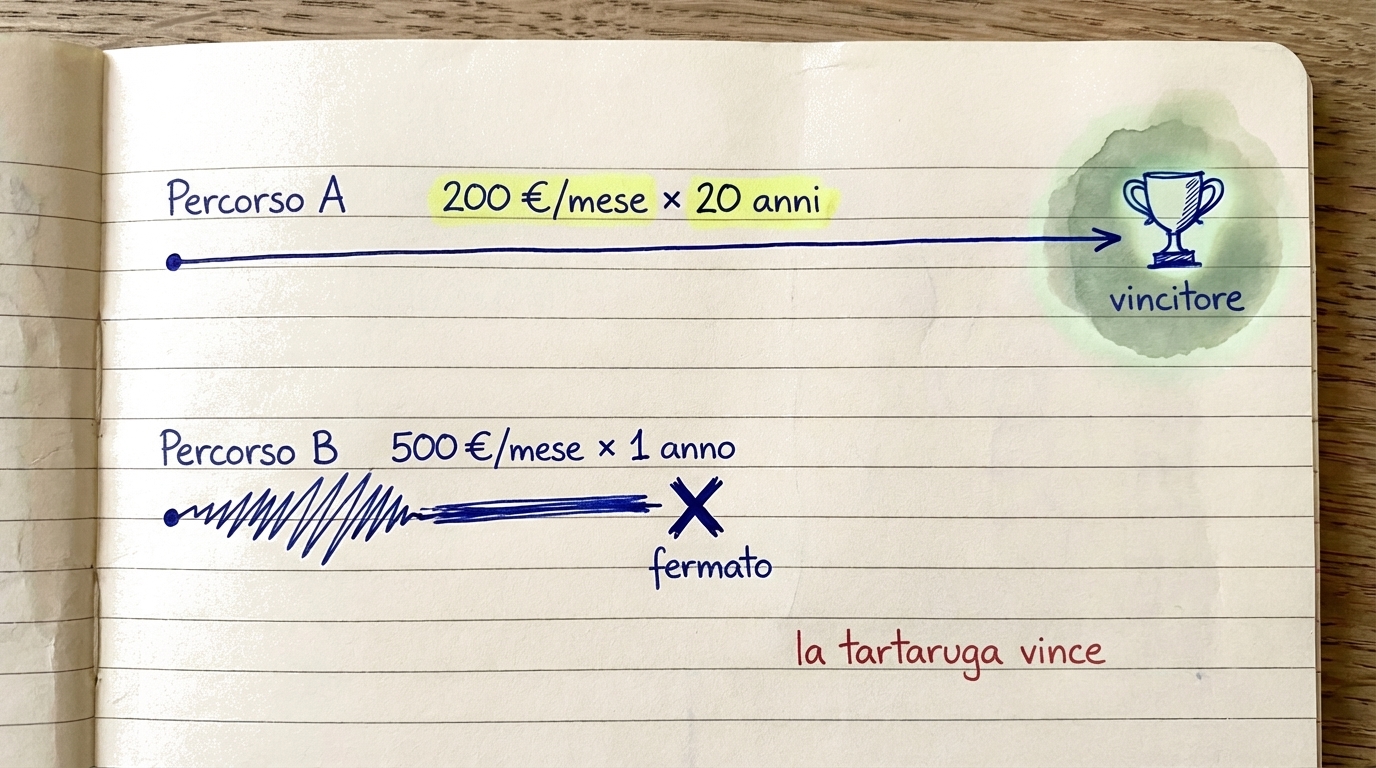 Percorso A 200 €/mese × 20 anni
vincitore
Percorso B 500 €/mese × 1 anno
fermato
la tartaruga vince